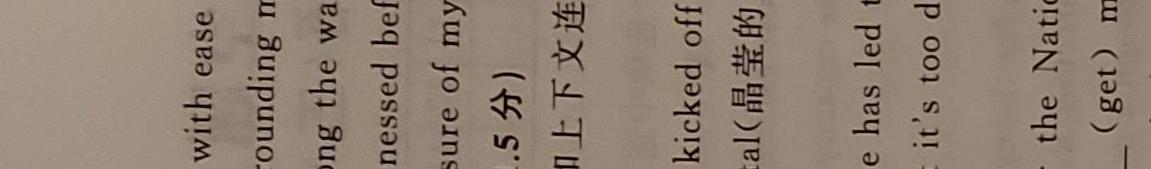 with ease
rounding
ong the wa
nessed bef
sure of my
.5 分)
上下文连
kicked off
tal(晶莹的
e has led t
it's too d
the Natio
(get) m